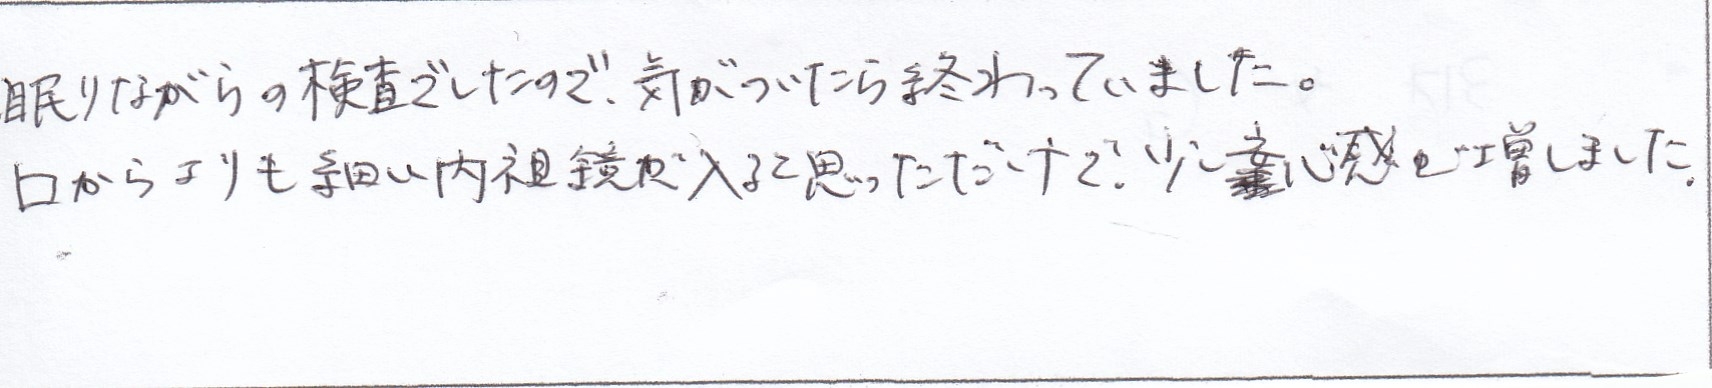 眠りながらの検査でしたので、気がついたら終わっていました。
口からよりも細い内視鏡が入ると思っただけで、少し安心感が増しました。